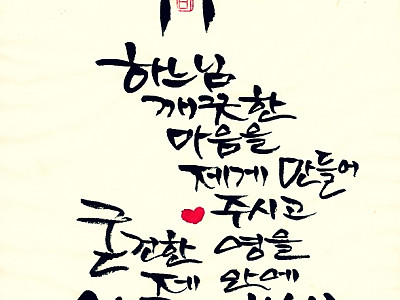 하느님
깨끗한
마음을
제게 만들어
주시고
굳건한 영을
제 안에